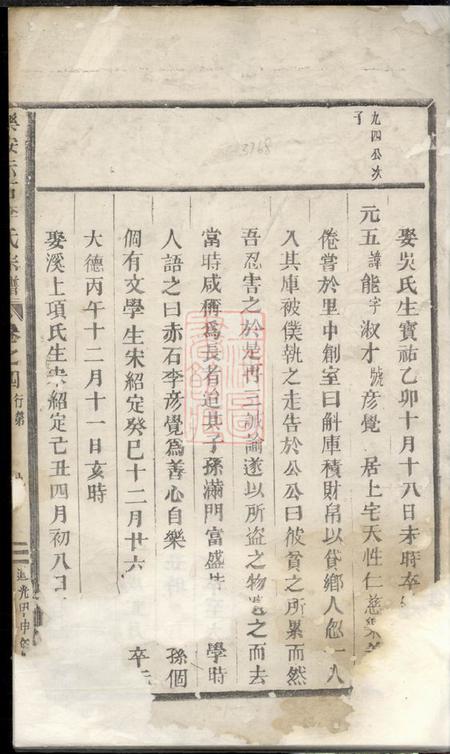 九四公次
子
娶吳氏生寶祐乙卯十月十八日未時卒
元五諱能字淑才號彥覺 居上宅天性仁慈樂善
倦嘗於里中創室曰斛庫積財帛以貸鄉人忽一人
入其庫被僕執之走告於公公曰彼貧之所累而然
吾忍害之於是再三誡諭遂以所盜之物 之而去
當時咸稱為長者迨其子孫滿門富盛 學時
人語之曰赤石李彥覺為善心自樂 孫個
個有文學生宋紹定癸巳十二月廿六 卒
大德丙午十二月十一日亥時
娶溪上項氏生宋紹定己丑四月初八日
氏宗譜 卷之四 行第
道光甲申
3768